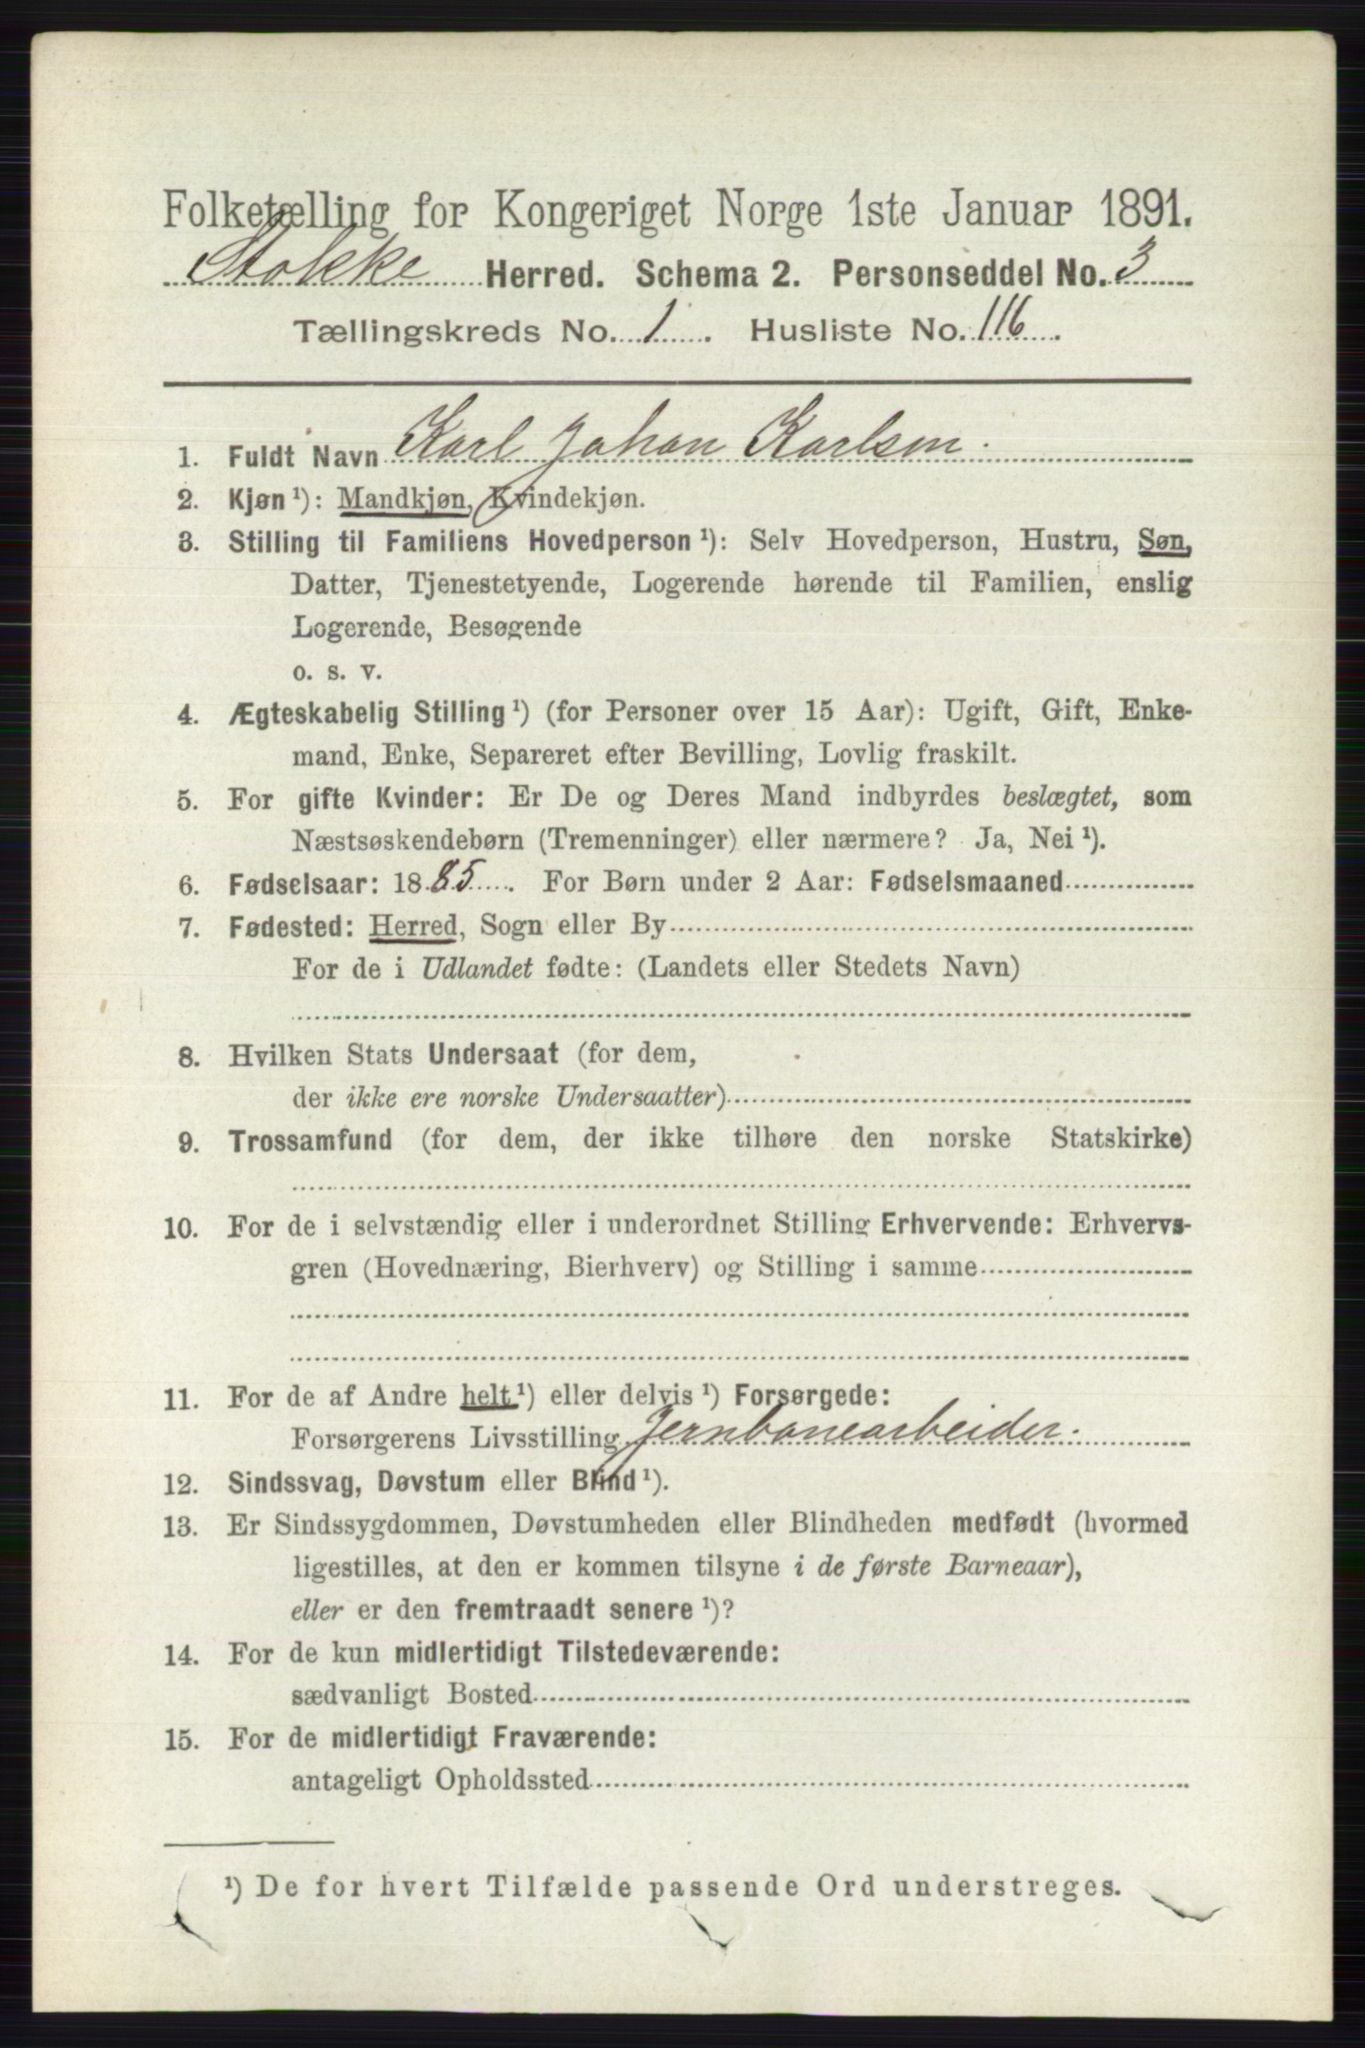 Folketælling for Kongeriget Norge 1ste Januar 1891.
Stokke Herred. Schema 2. Personseddel No. 3
Tællingskreds No. 1. Husliste No. 116.
1. Fuldt Navn Karl Johan Karlsen.
2. Kjøn ¹): Mandkjøn, Kvindekjøn.
3. Stilling til Familiens Hovedperson ¹): Selv Hovedperson, Hustru, Søn,
Datter, Tjenestetyende, Logerende hørende til Familien, enslig
Logerende, Besøgende
o. s. v.
4. Ægteskabelig Stilling ¹) (for Personer over 15 Aar): Ugift, Gift, Enke-
mand, Enke, Separeret efter Bevilling, Lovlig fraskilt.
5. For gifte Kvinder: Er De og Deres Mand indbyrdes beslægtet, som
Næstsøskendebørn (Tremenninger) eller nærmere? Ja, Nei ¹).
6. Fødselsaar: 1885. For Børn under 2 Aar: Fødselsmaaned
7. Fødested: Herred, Sogn eller By
For de i Udlandet fødte: (Landets eller Stedets Navn)
8. Hvilken Stats Undersaat (for dem,
der ikke ere norske Undersaatter)
9. Trossamfund (for dem, der ikke tilhøre den norske Statskirke)
10. For de i selvstændig eller i underordnet Stilling Erhvervende: Erhvervs-
gren (Hovednæring, Bierhverv) og Stilling i samme
11. For de af Andre helt ¹) eller delvis ¹) Forsørgede:
Forsørgerens Livsstilling Jernbanearbeider.
12. Sindssvag, Døvstum eller Blind ¹).
13. Er Sindssygdommen, Døvstumheden eller Blindheden medfødt (hvormed
ligestilles, at den er kommen tilsyne i de første Barneaar),
eller er den fremtraadt senere ¹)?
14. For de kun midlertidigt Tilstedeværende:
sædvanligt Bosted
15. For de midlertidigt Fraværende:
antageligt Opholdssted
¹) De for hvert Tilfælde passende Ord understreges.